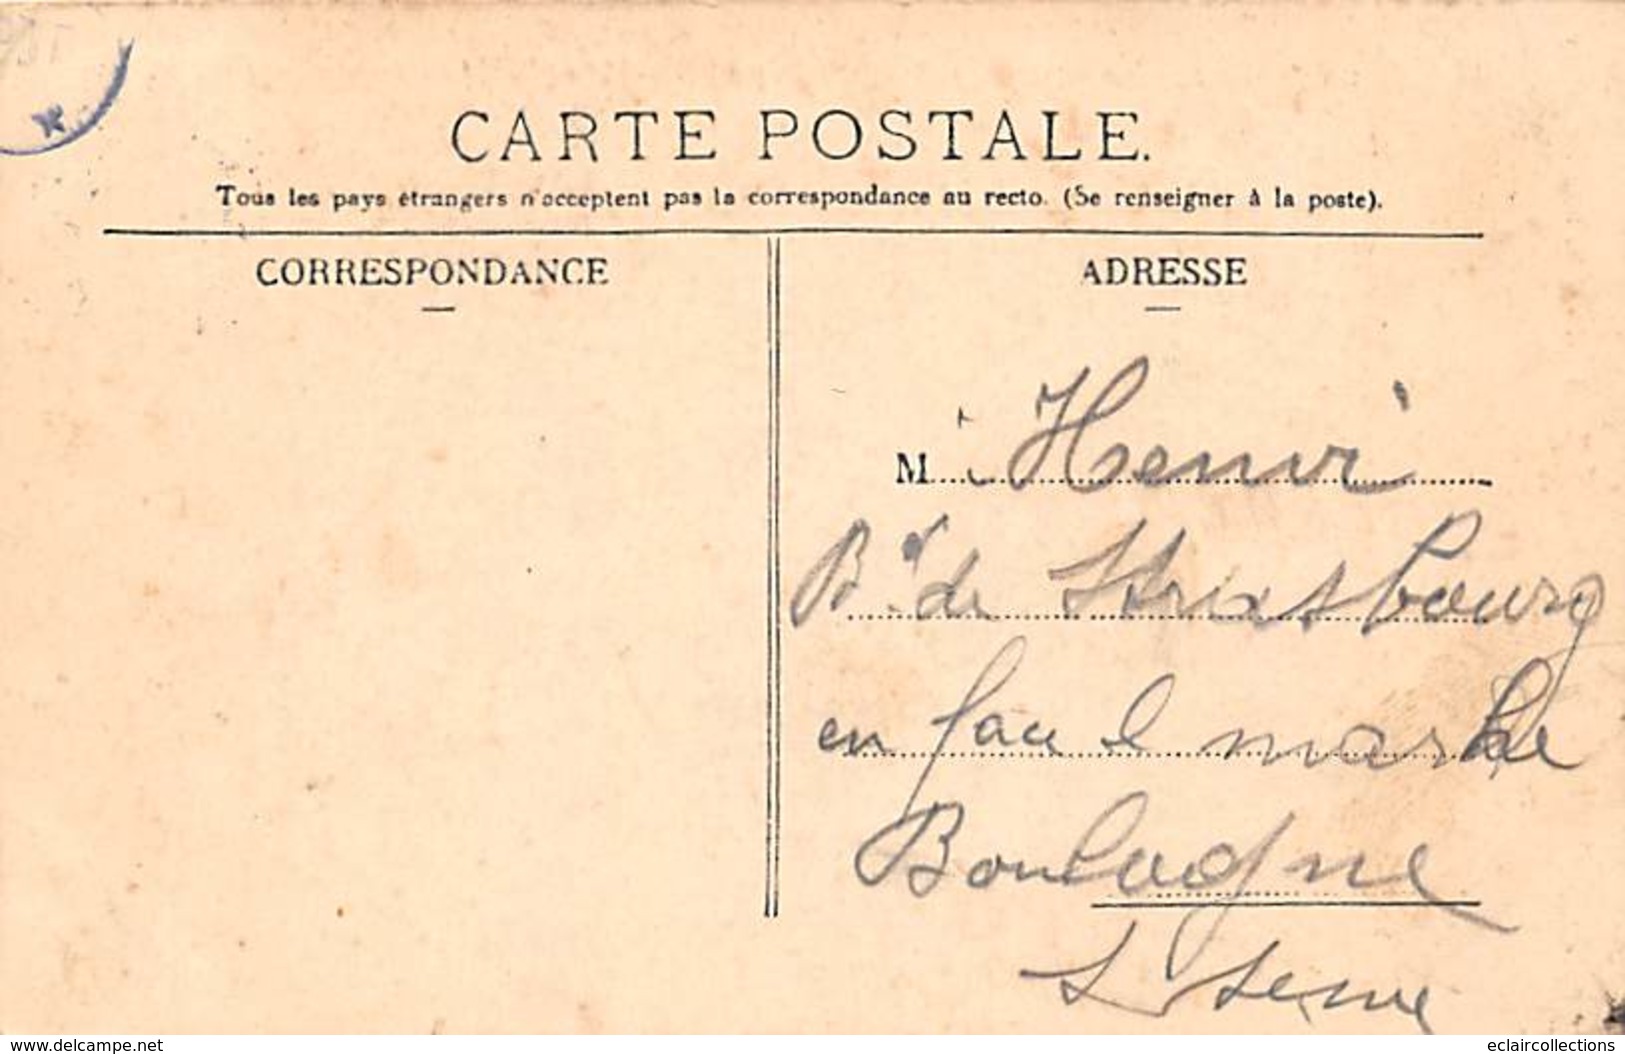 CARTE POSTALE.
Tous les pays étrangers n'acceptent pas la correspondance au recto. (Se renseigner à la poste).
CORRESPONDANCE
ADRESSE
M. Henri
Bd de Strasbourg
en face le marche
Boulogne
s Seine
www.delcampe.net
eclaircollections